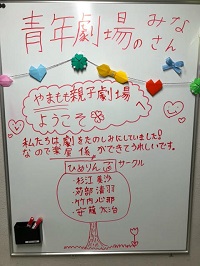 青年劇場のみなさん
やまもも親子劇場へ
ようこそ
私たちは劇をたのしみにしていました!
なので楽屋係ができてうれしいです。
ひめりんごサークル
・杉江美沙
・苅部清羽
・竹内心那
・安藤友治